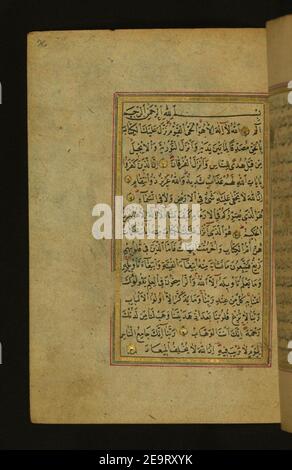 بسم الله الرحمن الرحيم
الم الله لا اله الا هو الحي القيوم نزل عليك الكتاب
بالحق مصدقا لما بين يديه وانزل التورية والانجيل
من قبل هدى للناس وانزل الفرقان ان الذين كفروا
بايات الله لهم عذاب شديد والله عزيز ذو انتقام
ان الله لا يخفى عليه شيء في الارض ولا في السماء
هو الذي يصوركم في الارحام كيف يشاء لا اله الا هو العزيز
الحكيم هو الذي انزل عليك الكتاب منه ايات محكمات
هن ام الكتاب واخر متشابهات فاما الذين في قلوبهم
زيغ فيتبعون ما تشابه منه ابتغاء الفتنة وابتغاء تاويله
وما يعلم تاويله الا الله والراسخون في العلم يقولون
امنا به كل من عند ربنا وما يذكر الا اولوا الالباب
ربنا لا تزغ قلوبنا بعد اذ هديتنا وهب لنا من لدنك
رحمة انك انت الوهاب ربنا انك جامع الناس
ليوم لا ريب فيه ان الله لا يخلف الميعاد
alamy
Image ID: 2E9RXYK
www.alamy.com